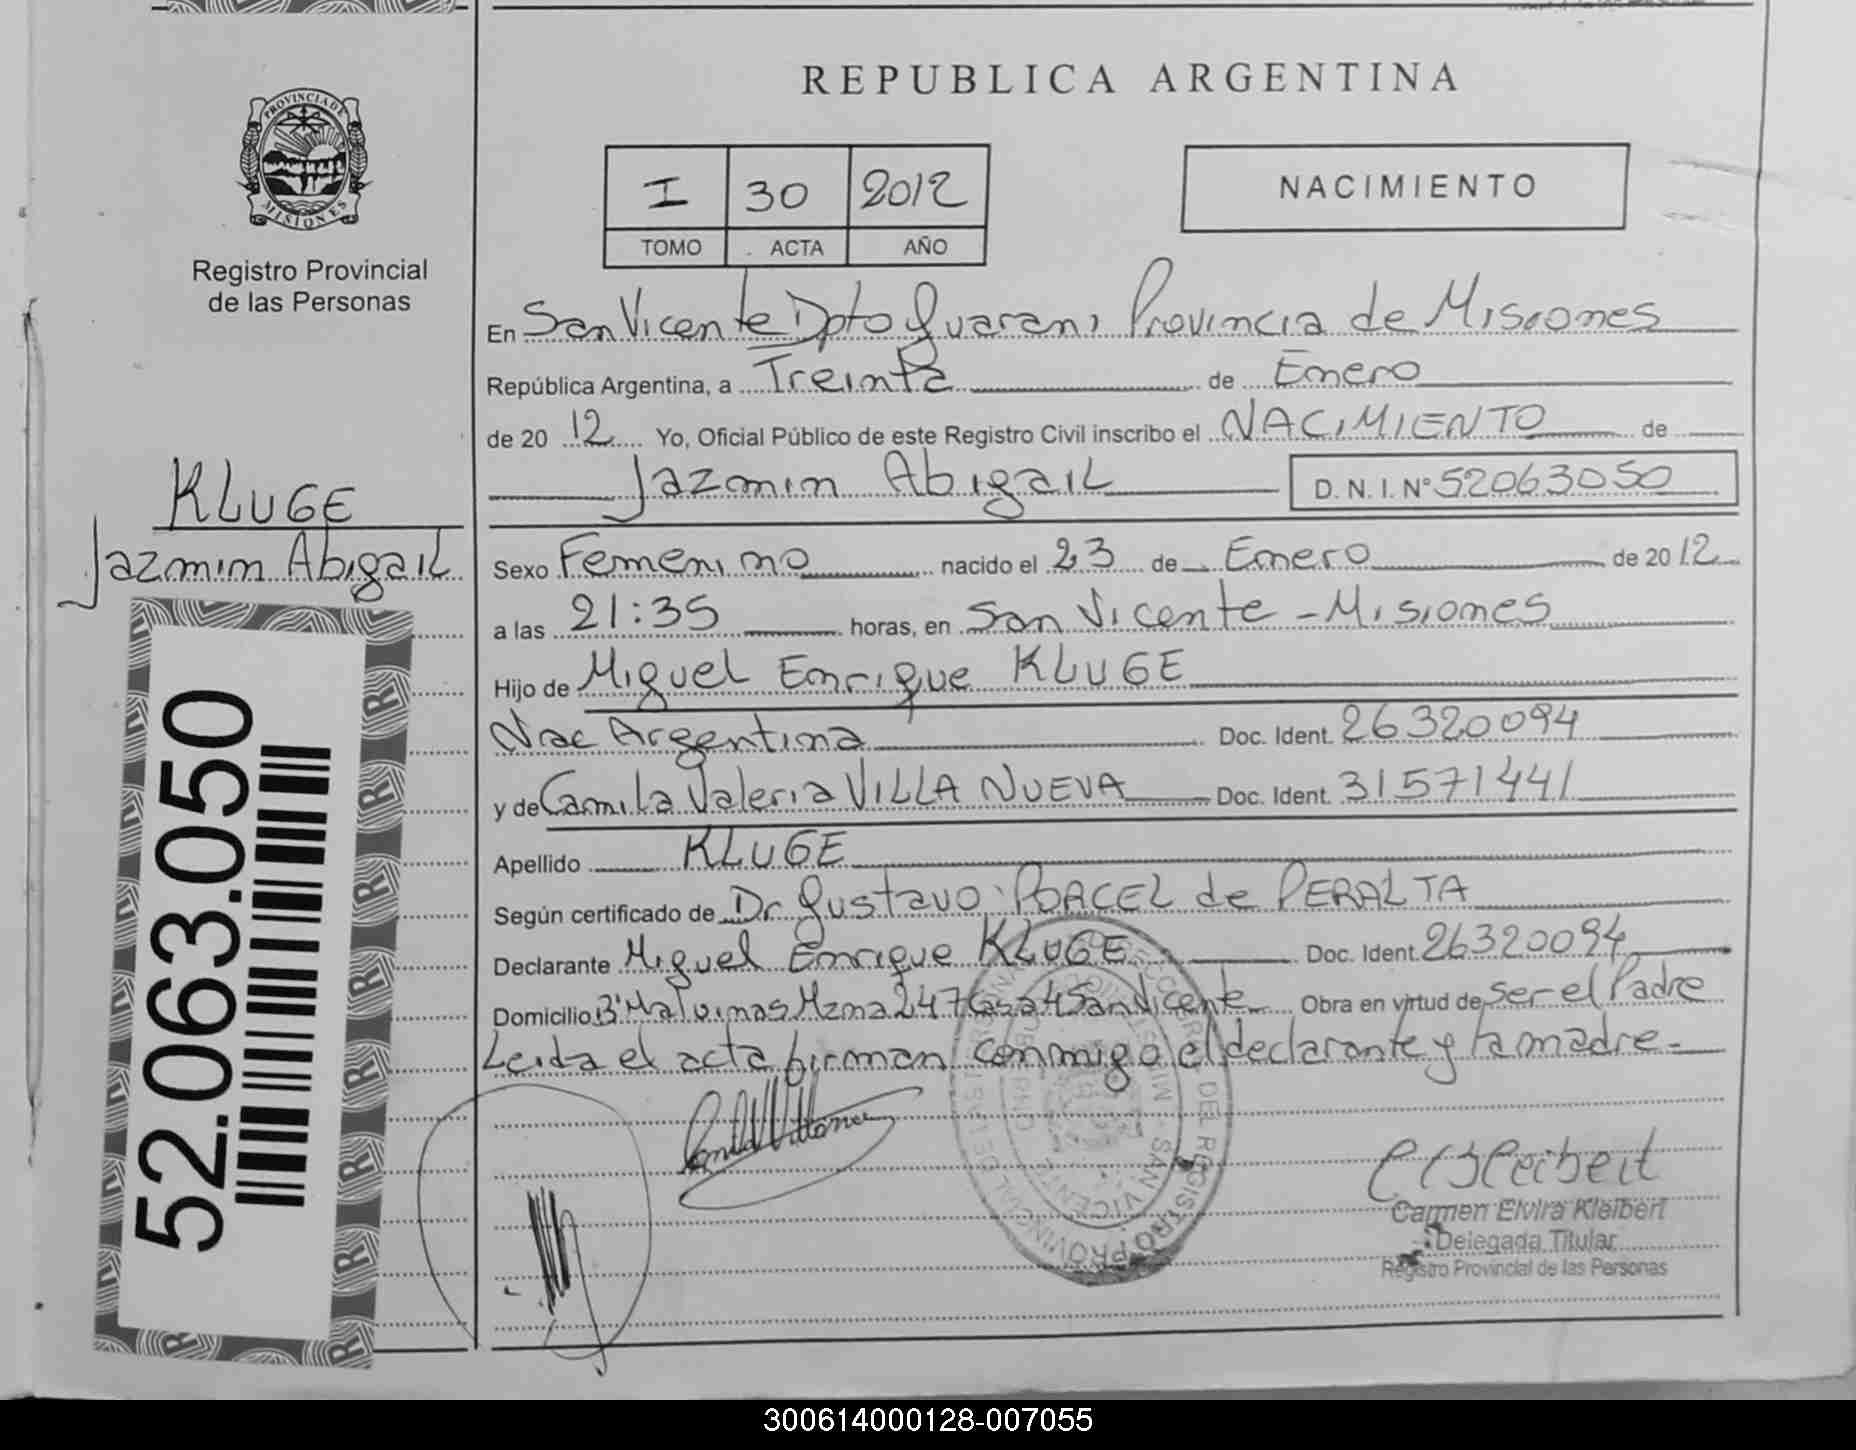 REPUBLICA ARGENTINA
PROVINCIA DE
MISIONES
Registro Provincial
de las Personas
I 30 2012
TOMO ACTA AÑO
NACIMIENTO
En San Vicente Dpto Guarani Provincia de Misiones
República Argentina, a Treinta de Enero
de 20 12 Yo, Oficial Público de este Registro Civil inscribo el NACIMIENTO de
Jazmin Abigail D. N. I. Nº 52063050
KLUGE
Jazmin Abigail
Sexo Femenino nacido el 23 de Enero de 20 12
a las 21:35 horas, en San Vicente - Misiones
Hijo de Miguel Enrique KLUGE
Nac Argentina Doc. Ident. 26320094
y de Camila Valeria VILLA NUEVA Doc. Ident. 31571441
Apellido KLUGE
Según certificado de Dr Gustavo PORCEL de PERALTA
Declarante Miguel Enrique KLUGE Doc. Ident. 26320094
Domicilio Bº Malvinas Mzna 247 Casa 4 San Vicente Obra en virtud de ser el Padre
Leida el acta firman conmigo el declarante y la madre-
52.063.050
DEL REGISTRO PROVINCIAL DE LAS
SAN VICENTE
Carmen Elvira Kleibert
Delegada Titular
Registro Provincial de las Personas
300614000128-007055